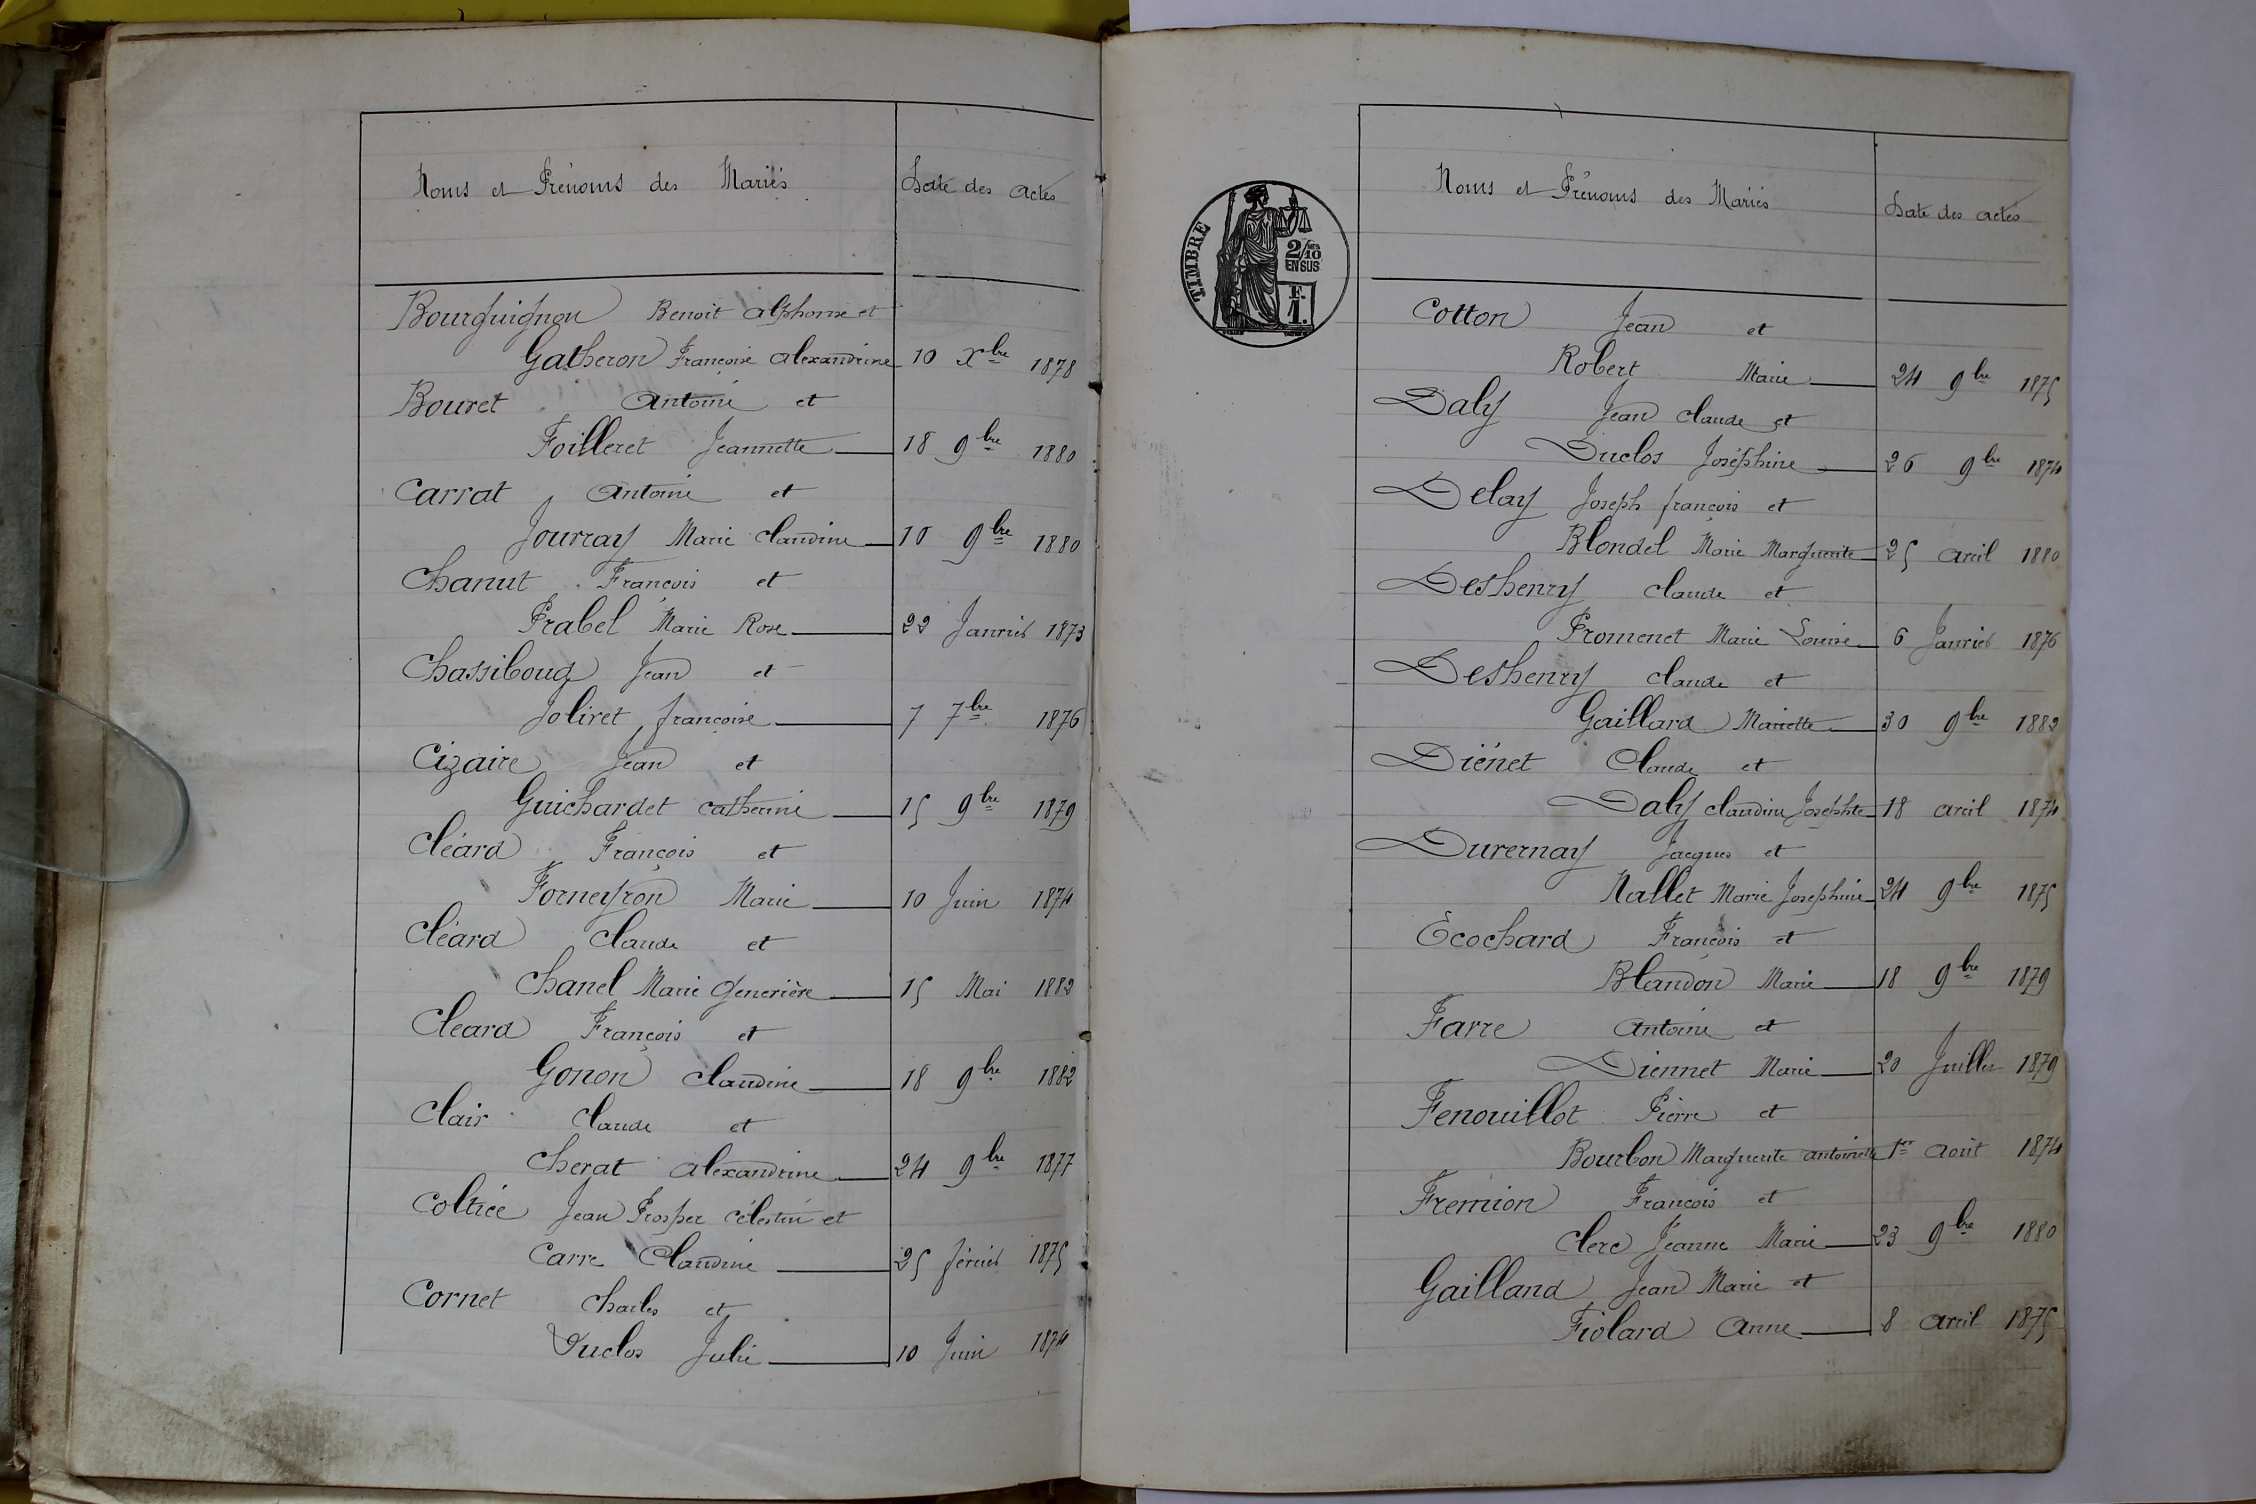 Noms et Prénoms des Mariés
Date des actes
Bourguignon Benoit alphonse et
Gatheron Françoise alexandrine 10 Xbre 1878
Bouret Antoine et
Foilleret Jeannette 18 9bre 1880
Carrat Antoine et
Jourray Marie Claudine 10 9bre 1880
Chanut François et
Prabel Marie Rose 22 Janvier 1873
Chassiboud Jean et
Joliret françoise 7 7bre 1876
Cizaire Jean et
Guichardet Catherine 15 9bre 1879
Cléard François et
Forneyron Marie 10 Juin 1874
Cléard Claude et
Chanel Marie Geneviève 15 Mai 1882
Cleard François et
Gonon Claudine 18 9bre 1882
Clair Claude et
Cherat alexandrine 24 9bre 1877
Coltiée Jean Prosper Célestin et
Carre Claudine 25 février 1875
Cornet Charles et
Duclos Julie 10 Juin 1874
TIMBRE
2/10
EN SUS
F.
1.
Noms et Prénoms des Mariés
Date des actes
Cotton Jean et
Robert Marie 24 9bre 1875
Daly Jean Claude et
Duclos Joséphine 26 9bre 1874
Delay Joseph françois et
Blondel Marie Marguerite 25 avril 1880
Deshenry Claude et
Promenet Marie Louise 6 Janvier 1876
Deshenry Claude et
Gaillard Mariette 30 9bre 1882
Diénet Claude et
Daly Claudine Josephte 18 avril 1874
Duvernay Jacques et
Nallet Marie Josephine 24 9bre 1875
Ecochard François et
Blandon Marie 18 9bre 1879
Farre Antoine et
Diennet Marie 20 Juillet 1879
Fenouillot Pierre et
Bourbon Marguerite antoinette 1er août 1874
Fremion François et
Clerc Jeanne Marie 23 9bre 1880
Gailland Jean Marie et
Fiolard Anne 8 avril 1875